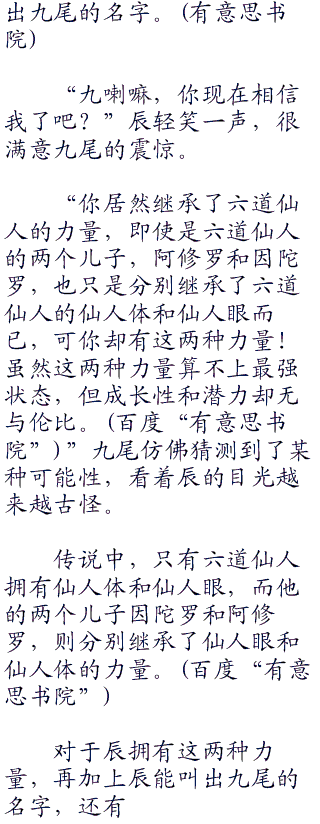 出九尾的名字。(有意思书
院)
“九喇嘛，你现在相信
我了吧？”辰轻笑一声，很
满意九尾的震惊。
“你居然继承了六道仙
人的力量，即使是六道仙人
的两个儿子，阿修罗和因陀
罗，也只是分别继承了六道
仙人的仙人体和仙人眼而
已，可你却有这两种力量！
虽然这两种力量算不上最强
状态，但成长性和潜力却无
与伦比。(百度“有意思书
院”)”九尾仿佛猜测到了某
种可能性，看着辰的目光越
来越古怪。
传说中，只有六道仙人
拥有仙人体和仙人眼，而他
的两个儿子因陀罗和阿修
罗，则分别继承了仙人眼和
仙人体的力量。(百度“有意
思书院”)
对于辰拥有这两种力
量，再加上辰能叫出九尾的
名字，还有